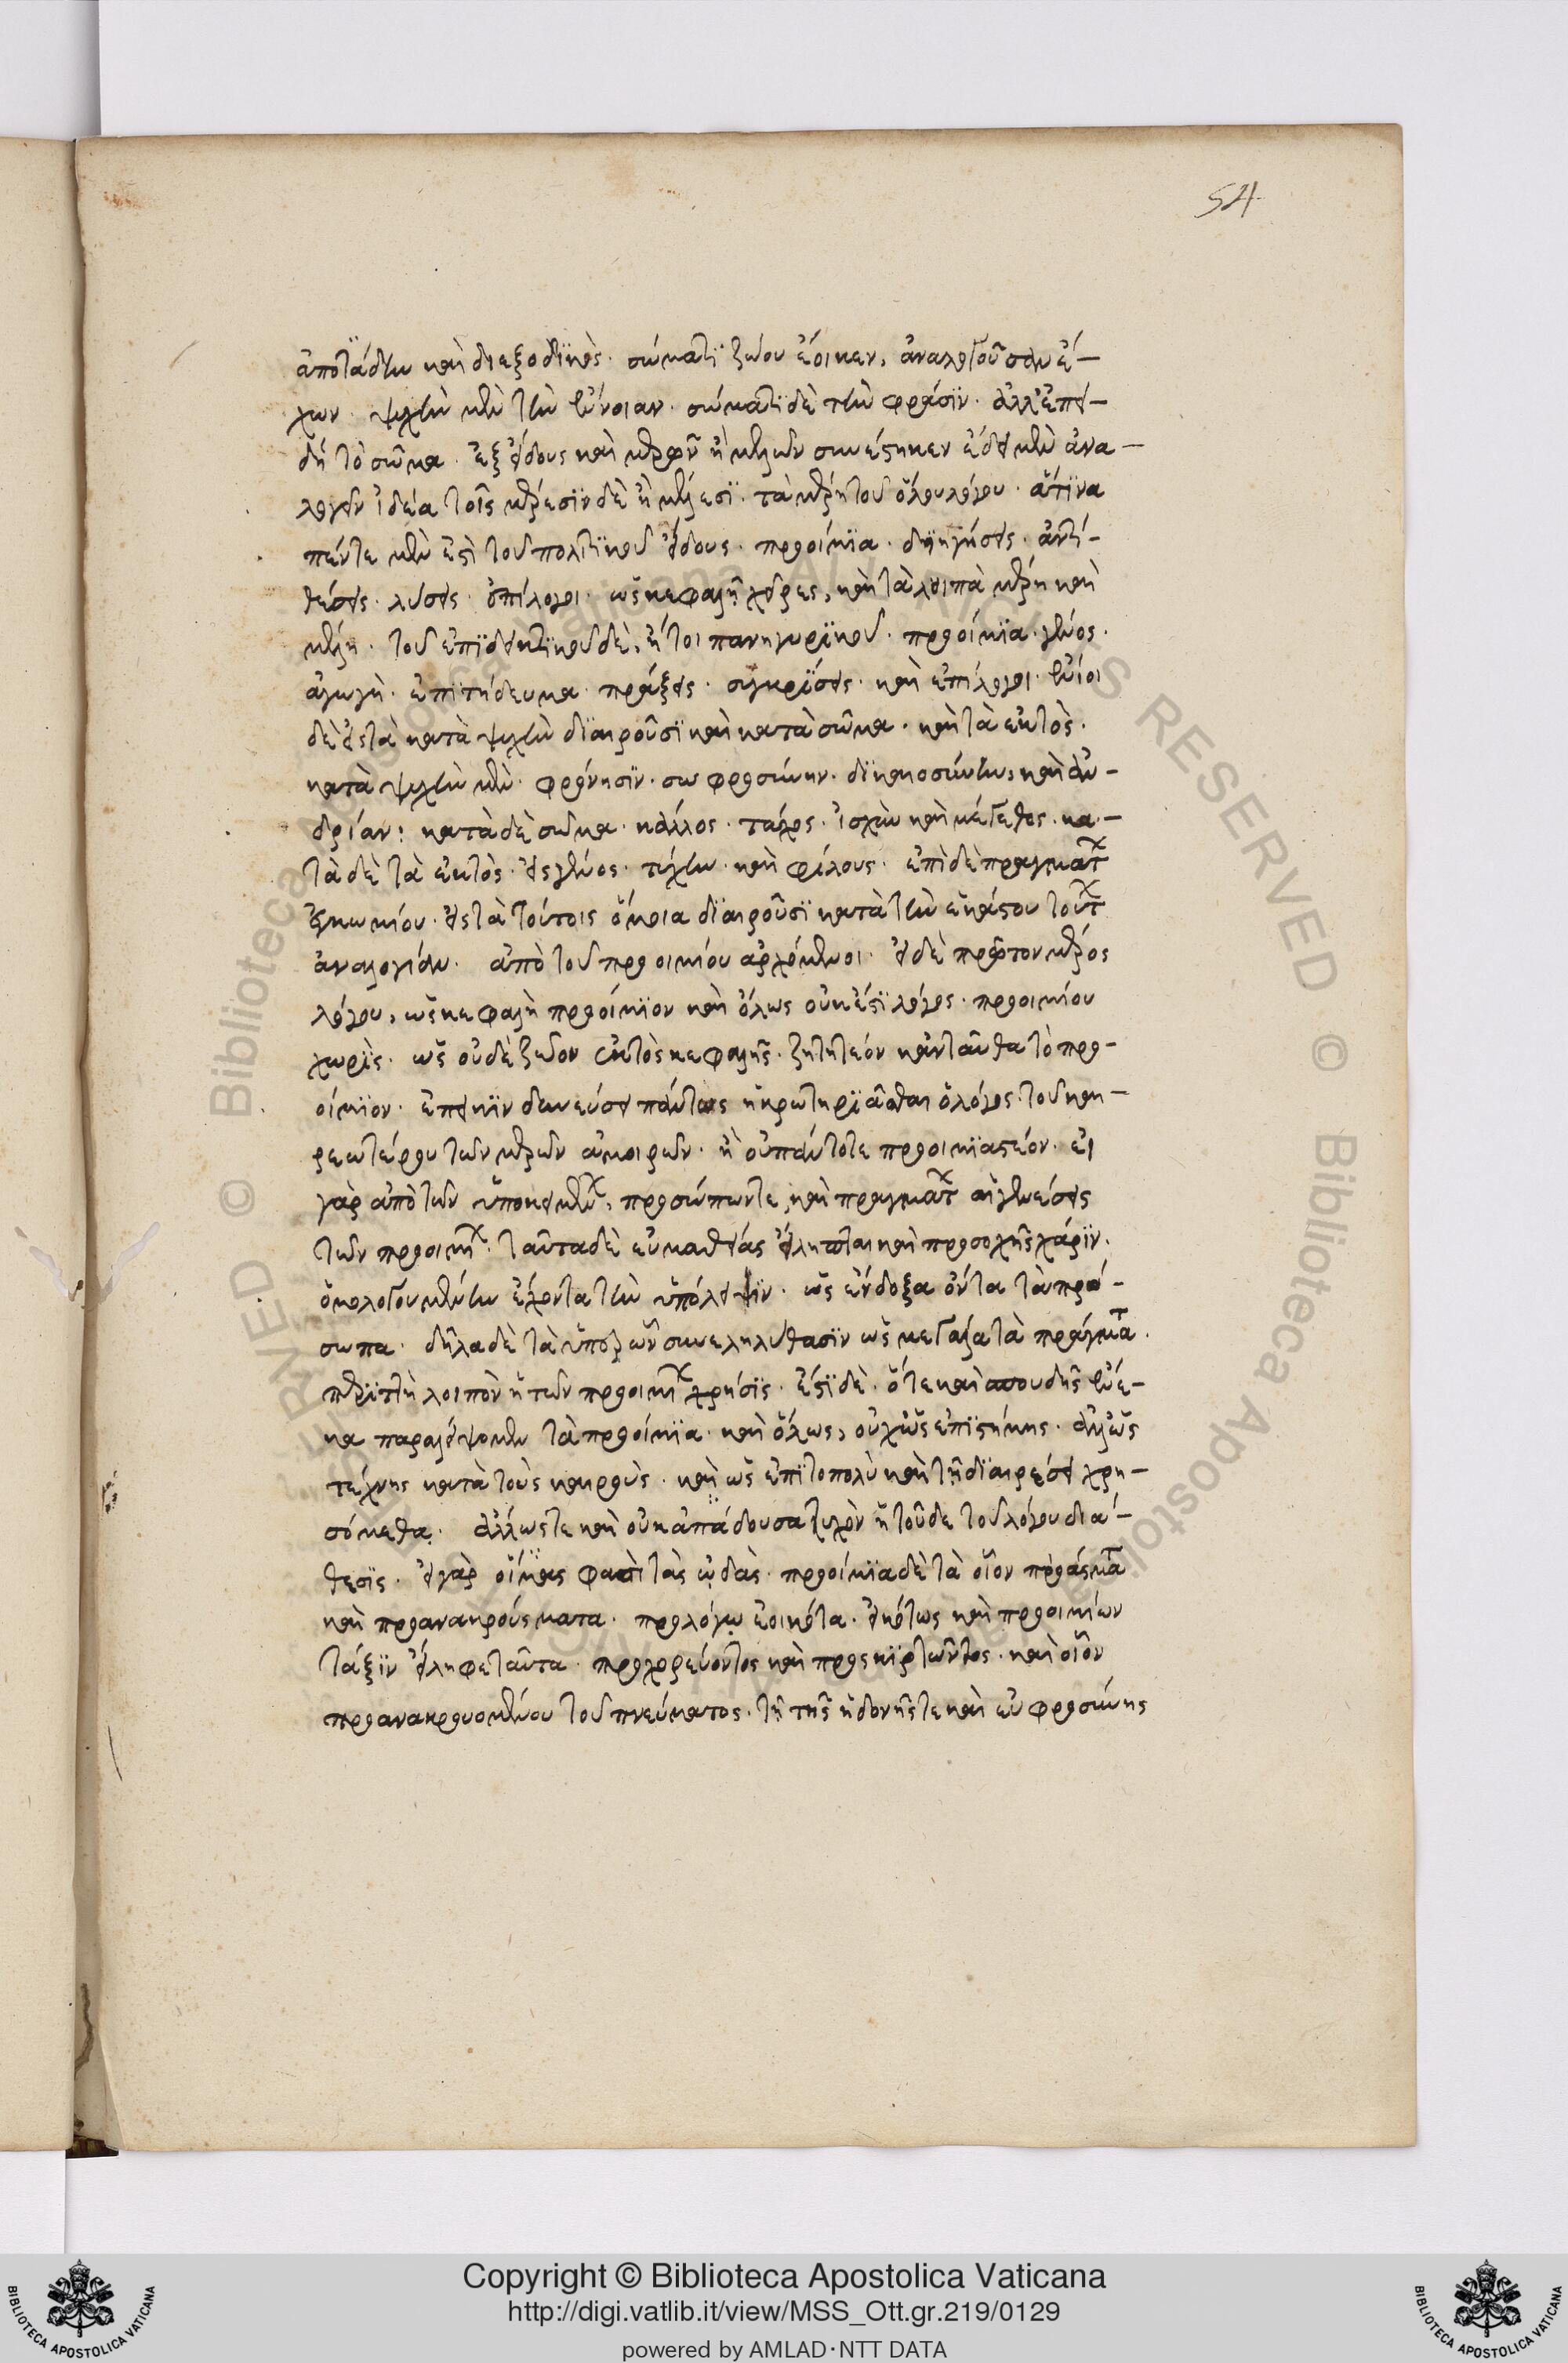 54
ἀποτάδην καὶ διεξοδϊκὸς· σώματϊ ζώου ἔοικεν, ἀναλογοῦσαν ἔ-
χων· ψυχὴν μὲν τὴν ἔννοιαν· σώματϊ δὲ τὴν φράσϊν· ἀλλ' ἐπει-
δὴ τὸ σῶμα· ἐξ εἴδους καὶ μερῶν ἢ μελῶν συνέστηκεν ἔδει μὲν ἀνα-
λογεῖν ἰδέα τοῖς μέρεσϊν δὲ ἢ μέλεσϊ· τὰ μέρη τοῦ ὅλου λόγου· ἅτϊνα
πέντε μὲν ἐστὶ τοῦ πολιτϊκοῦ εἴδους· προοίμϊα· διηγήσεις· ἀντί-
θέσεις· λύσεις· ἐπίλογοι· ὡς κεφαλὴ χεῖρες, καὶ τὰ λοιπὰ μέρη καὶ
μέλη· τοῦ ἐπϊδεικτϊκοῦ δὲ, ἤτοι πανηγυρϊκοῦ· προοίμϊα· γένος·
ἀγωγὴ· ἐπιτήδευμα· πράξεις· συγκρίσεις· καὶ ἐπίλογοι· ἔνιοι
δὲ εἰς τὰ κατὰ ψυχὴν διαιροῦσϊ καὶ κατὰ σῶμα· καὶ τὰ ἐκτὸς·
κατὰ ψυχὴν μὲν· φρόνησϊν· σωφροσύνην· δϊκαιοσύνην, καὶ ἀν-
δρίαν: κατὰ δὲ σῶμα· κάλλος· τάχος· ἰσχὺν καὶ μέγεθος· κα-
τὰ δὲ τὰ ἐκτὸς· εἰς γένος· τύχην· καὶ φίλους· ἐπὶ δὲ πραγμάτ
ἐγκωμίου· εἰς τὰ τούτοις ὅμοια δϊαιροῦσϊ κατὰ τὴν ἑκάστου τούτ
ἀναλογίαν· ἀπὸ τοῦ προοιμίου ἀρχόμενοι· εἰ δὲ πρῶτον μέρος
λόγου, ὡς κεφαλὴ προοίμϊον καὶ ὅλως οὐκ ἔστϊ λόγος· προοιμίου
χωρὶς· ὡς οὐδὲ ζῶον ἐκτὸς κεφαλῆς· ζητητέον κἀνταῦθα τὸ προ-
οίμϊον· ἐπεὶ κϊνδυνεύσει πάντως ἠκρωτηρϊᾶσθαι ὁ λόγος· τοῦ και-
ρεωτέρου τῶν μερῶν ἀμοιρῶν· ἢ οὐ πάντοτε προοιμϊαστέον· εἰ
γὰρ ἀπὸ τῶν ὑποκειμέν, προσώπων τε, καὶ πραγμάτ αἱ γενέσεις
τῶν προοιμί· ταῦτα δὲ εὐμαθείας εἴληπται καὶ προσοχῆς χάρϊν·
ὁμολογουμένην ἔχοντα τὴν ὑπόληψϊν· ὡς ἔνδοξα ὄντα τὰ πρό-
σωπα· δῆλα δὲ τὰ ὑπὲρ ὧν συνεληλύθασϊν ὡς μεγάλα τὰ πράγματ·
περϊττὴ λοιπὸν ἡ τῶν προοιμί χρήσϊς· ἔστϊ δὲ· ὅτε καὶ σπουδῆς ἕνε-
κα παραλείψομεν τὰ προοίμϊα· καὶ ὅλως, οὐχ ὡς ἐπϊστήμης· ἀλλ' ὡς
τέχνης κατὰ τοὺς καιροὺς· καὶ ὡς ἐπϊτοπολὺ καὶ τῇ δϊαιρέσει χρη-
σόμεθα· ἄλλως τε καὶ οὐκ ἀπάδουσα τυχὸν ἡ τοῦδε τοῦ λόγου διά-
θεσϊς· εἰ γὰρ οἴμας φασὶ τὰς ᾠδὰς· προοίμϊα δὲ τὰ οἷον προάσματ
καὶ προανακρούσματα· προλόγῳ ἐοικότα· εἰκότως καὶ προοιμίων
τάξϊν εἴληφε ταῦτα· προχορεύοντος καὶ προσκϊρτῶντος· καὶ οἷον
προανακρουομένου τοῦ πνεύματος· τῇ τῆς ἡδονῆς τε καὶ εὐφροσύνης
Copyright © Biblioteca Apostolica Vaticana
http://digi.vatlib.it/view/MSS_Ott.gr.219/0129
powered by AMLAD·NTT DATA